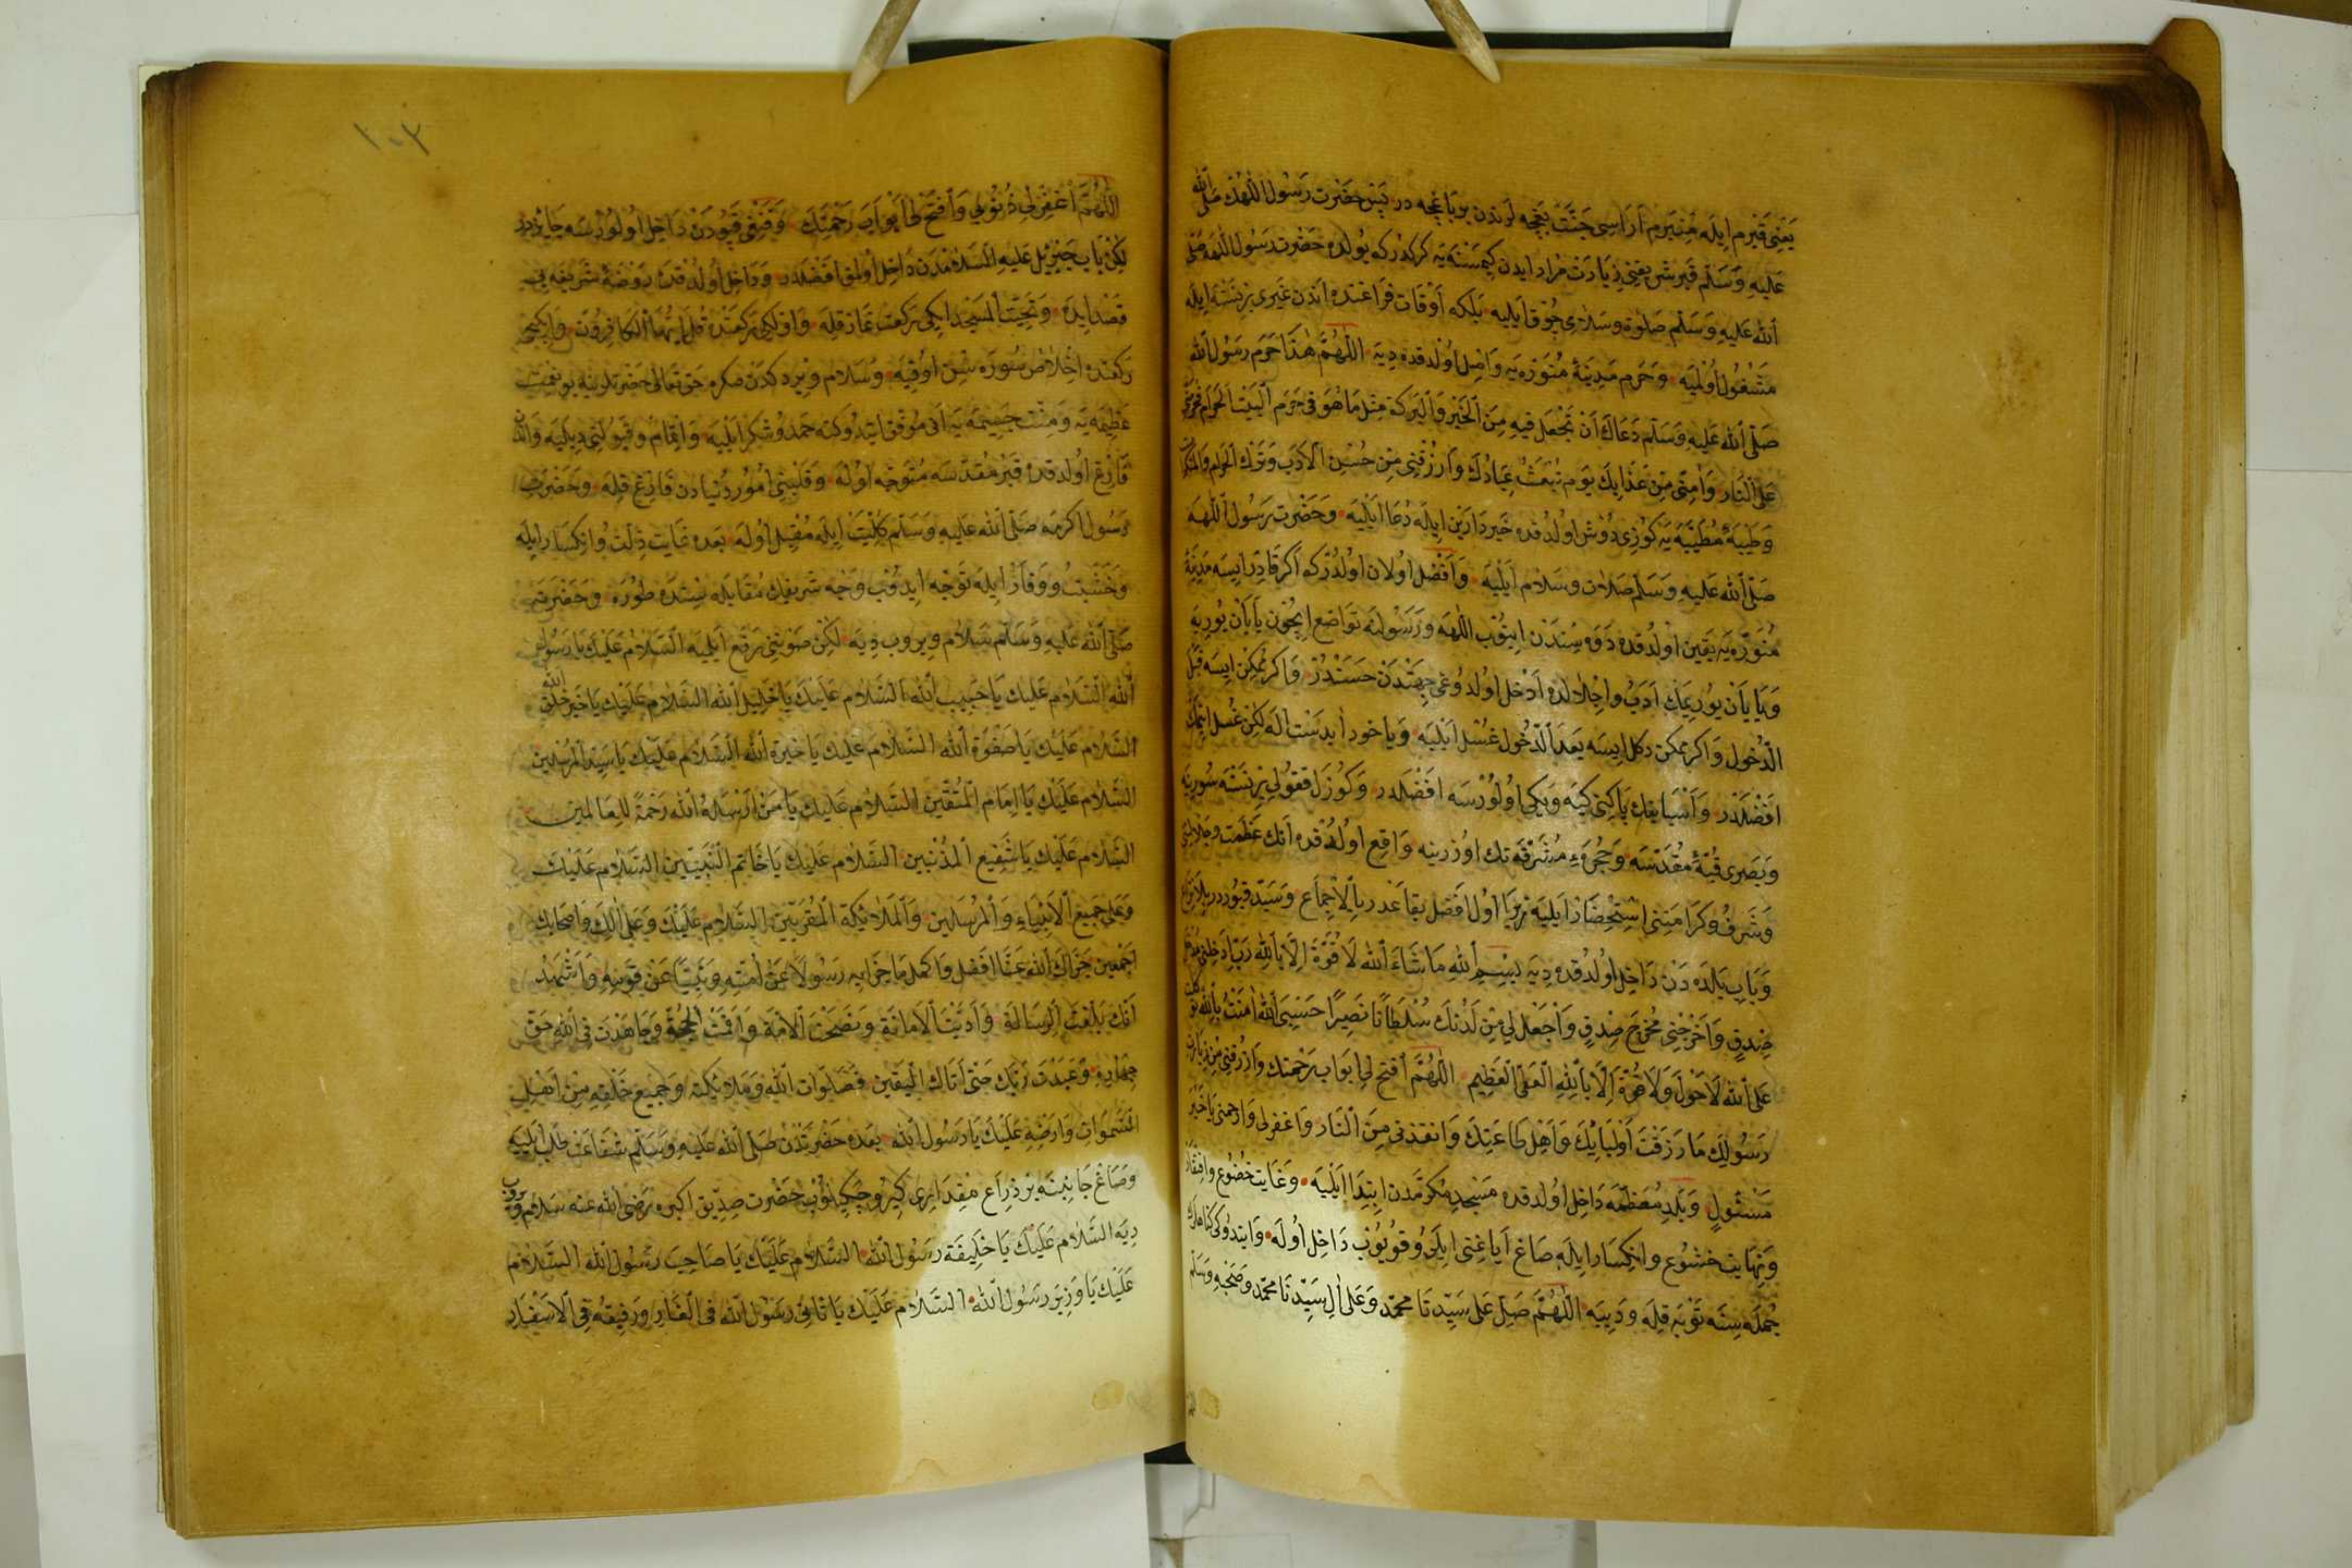 يعنى قبرم ايله منبرم اراسى جنت بغچه لرندن بر باغچه در پس حضرت رسول اللهك صلى الله
عليه وسلم قبر شريفنى زيارت مراد ايدن كيمسنه يه كركدركه يولده حضرت رسول اللهه صلى
الله عليه وسلم صلوة وسلامى چوق ايليه بلكه اوقات فراغتده اندن غيرى نسنه ايله
مشغول اولميه وحرم مدينهٔ منوره يه واصل اولدقده ديه اللهم هذا حرم رسول الله
صلى الله عليه وسلم دعاك ان تجعل فيه من الخير والبركة مثل ما هو في حرم البيت الحرام فحرمنى
على النار وامنى من عذابك يوم تبعث عبادك وارزقنى من حسن الادب وترك الحرام
وطيبهٔ مطيبه يه كوزى دوش اولدقده خير دارين ايله دعا ايليه وحضرت رسول اللهه
صلى الله عليه وسلم صلات وسلام ايليه وافضل اولان اولدركه اكر قادر ايسه مدينهٔ
منوره يه يقين اولدقده دوه سندن اينوب اللهه ورسولنه تواضع ايچون يايان يوريه
ويايان يوريمك ادب واجلالده ادخل اولدوغى جهتدن حسندر واكر ممكن ايسه قبل
الدخول واكر ممكن دكل ايسه بعد الدخول غسل ايليه ويا خود ابدست اله لكن غسل ايتمك
افضلدر واثيابنك پاكنى كيه ويكى اولورسه افضلدر وكوزل قوقولى نسنه سورنه
وبصرى قبهٔ مقدسه وحجرهٔ مشرفه نك اوزرينه واقع اولدقده انك عظمت وجلالنى
وشرف وكرامتنى استحضار ايليه زيرا اول افضل بقاعدر بالاجماع وسيد قبوردر بلا نزاع
وباب بلده دن داخل اولدقده ديه بسم الله ما شاء الله لا قوة الا بالله رب ادخلنى مدخل
صدق واخرجنى مخرج صدق واجعل لى من لدنك سلطانا نصيرا حسبى الله امنت بالله توكلت
على الله لا حول ولا قوة الا بالله العلى العظيم اللهم افتح لى ابواب رحمتك وارزقنى من زيارة
رسولك ما رزقت اوليائك واهل طاعتك وانقذنى من النار واغفر لى وارحمنى يا خير
مسئول وبلد معظمه داخل اولدقده مسجد مكرمدن ابتدا ايليه وغايت خضوع وافتقار
ونهايت خشوع وانكسار ايله صاغ اياغنى ايلرو قويوب داخل اوله وايتدوكى كناهلرك
جمله سنه توبه قله وديه اللهم صل على سيدنا محمد وعلى ال سيدنا محمد وصحبه وسلم
١٠٢
اللهم اغفر لى ذنوبي وافتح لى ابواب رحمتك وقنغى قپودن داخل اولورسه جائزدر
لكن باب جبريل عليه السلامدن داخل اولمق افضلدر وداخل اولدقده روضهٔ شريفه يى
قصد ايده وتحيت المسجد ايكى ركعت نماز قله واولكى ركعتده قل يا ايها الكافرون وايكنجى
ركعتده اخلاص سوره سن اوقيه وسلام ويردكدن صكره حق تعالى حضرتلرينه بو نعمت
عظيمه يه ومنت جسيمه يه انى موفق ايتدوكنه حمد وشكر ايليه واتمام وقبولنى ديليه واندن
فارغ اولدقده قبر مقدسه متوجه اوله وقلبنى امور دنيادن فارغ قله وحضرت
رسول اكرمه صلى الله عليه وسلم كليت ايله مقبل اوله بعده غايت ذلت وانكسار ايله
وخشيت ووقار ايله توجه ايدوب وجه شريفك مقابله سنده طوره وحضرته
صلى الله عليه وسلم سلام ويروب ديه لكن صوتنى رفع ايلميه السلام عليك يا رسول
الله السلام عليك يا حبيب الله السلام عليك يا خليل الله السلام عليك يا خير خلق الله
السلام عليك يا صفوة الله السلام عليك يا خيرة الله السلام عليك يا سيد المرسلين
السلام عليك يا امام المتقين السلام عليك يا من ارسله الله رحمة للعالمين
السلام عليك يا شفيع المذنبين السلام عليك يا خاتم النبيين السلام عليك
وعلى جميع الانبياء والمرسلين والملائكة المقربين السلام عليك وعلى الك واصحابك
اجمعين جزاك الله عنا افضل واكمل ما جزا به رسولا عن امته ونبيا عن قومه واشهد
انك بلغت الرسالة واديت الامانة ونصحت الامة واقمت الحجة وجاهدت فى الله حق
جهاده وعبدت ربك حتى اتاك اليقين فصلوات الله وملائكته وجميع خلقه من اهل
السموات وارضه عليك يا رسول الله بعده حضرتدن صلى الله عليه وسلم شفاعت طلب ايليه
وصاغ جانبنه بر ذراع مقدارى كيرو چكيلوب حضرت صديق اكبره رضى الله عنه سلام ويروب
ديه السلام عليك يا خليفة رسول الله السلام عليك يا صاحب رسول الله السلام
عليك يا وزير رسول الله السلام عليك يا ثانى رسول الله فى الغار ورفيقه فى الاسفار